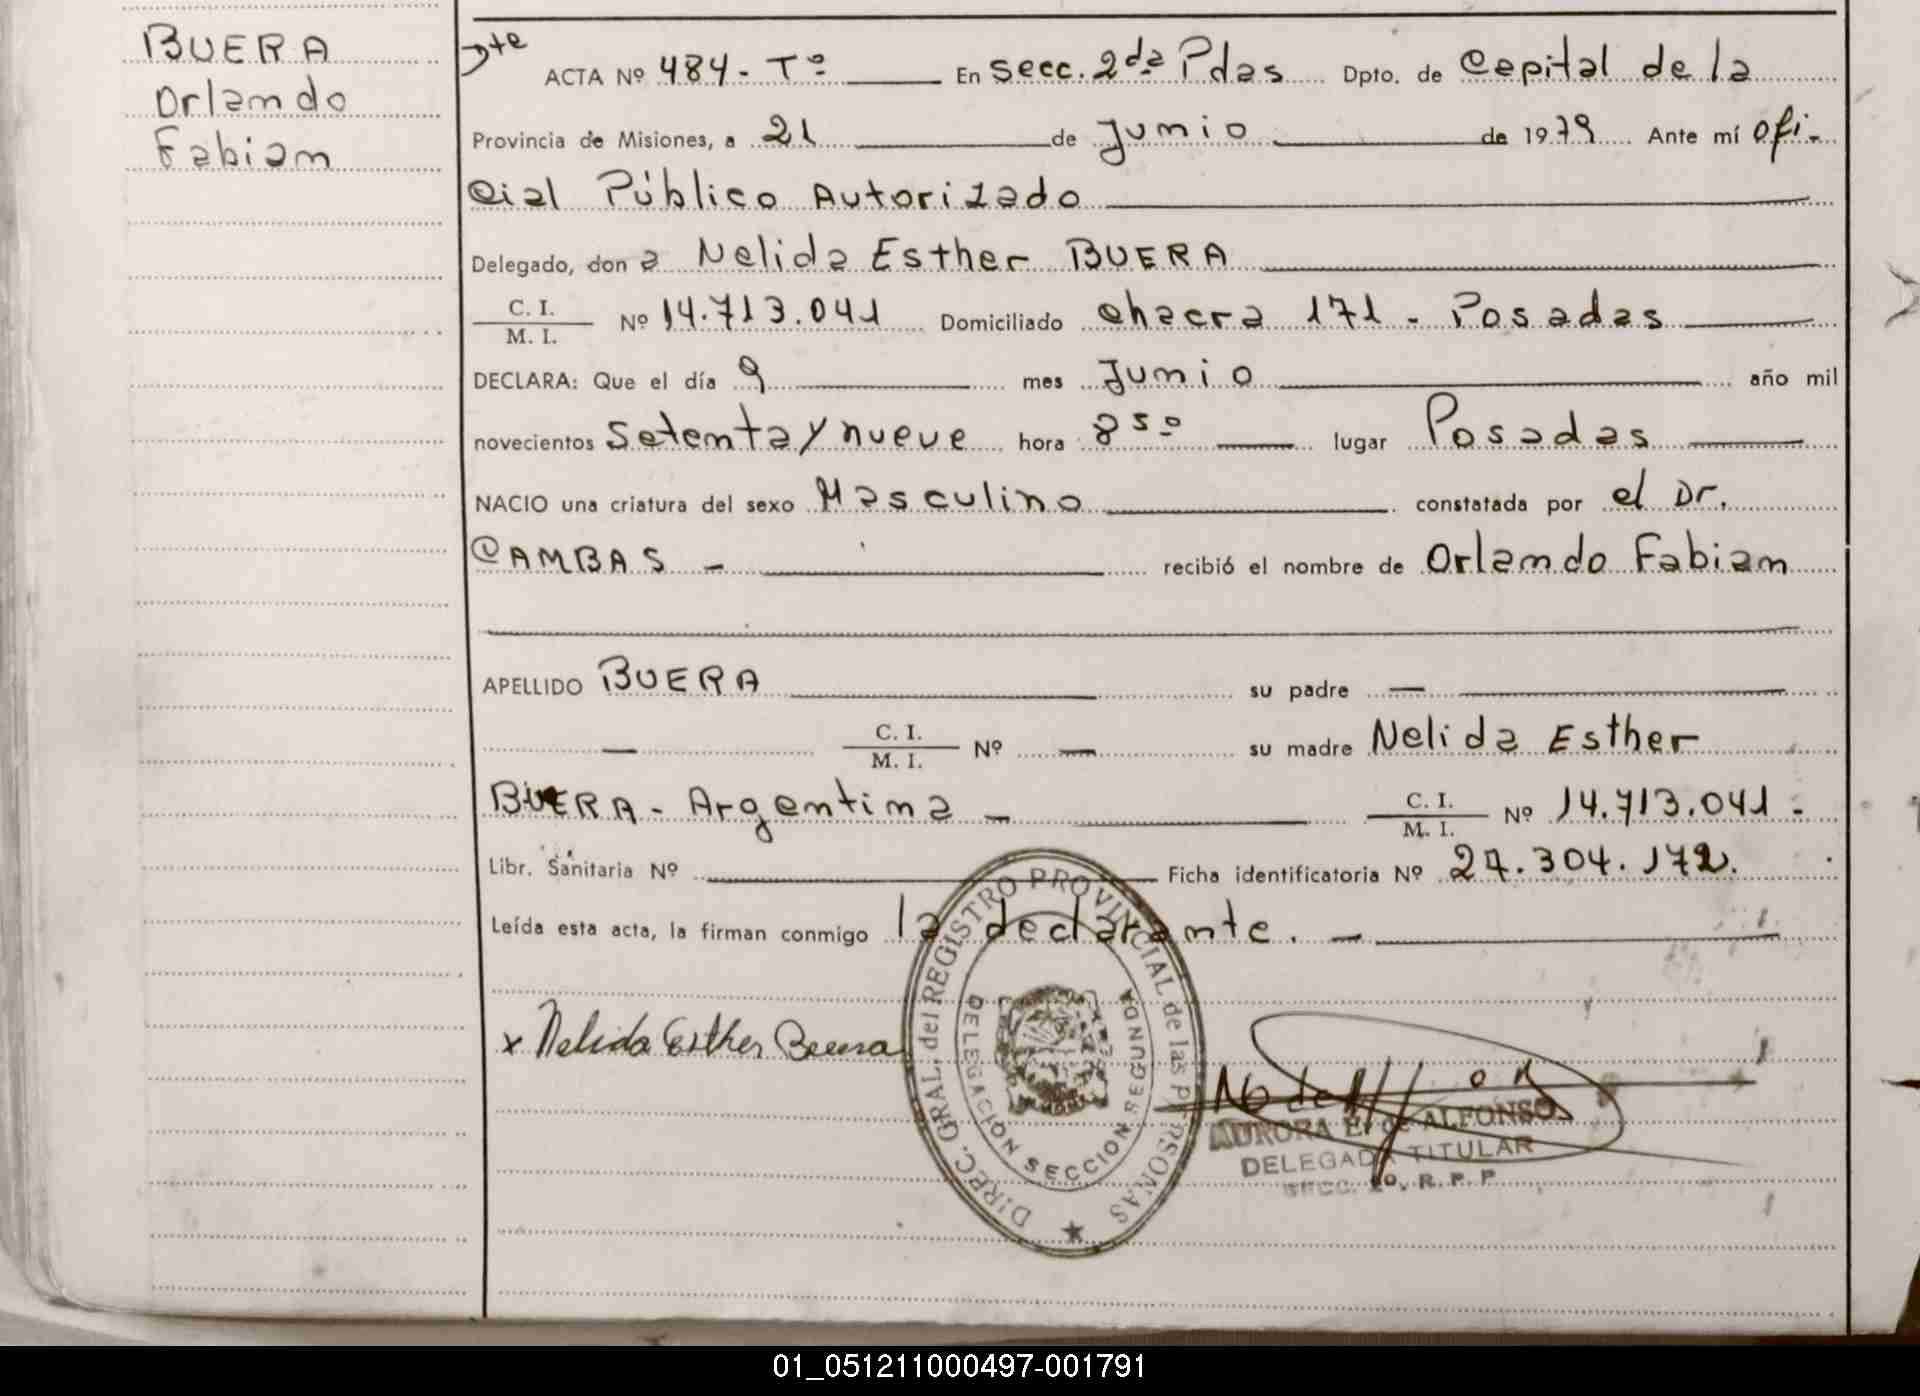 BUERA
Orlando
Fabian
ACTA Nº 484 - Tº En secc. 2da Pdas Dpto. de Capital de la
Provincia de Misiones, a 21 de Junio de 1979 Ante mí ofi-
cial Público Autorizado
Delegado, don a Nelida Esther BUERA
C. I.
M. I. Nº 14.713.041 Domiciliado chacra 171 - Posadas
DECLARA: Que el día 9 mes Junio año mil
novecientos Setenta y nueve hora 8 50 lugar Posadas
NACIO una criatura del sexo Masculino constatada por el Dr.
CAMBAS - recibió el nombre de Orlando Fabian
APELLIDO BUERA su padre —
— C. I.
M. I. Nº — su madre Nelida Esther
BUERA - Argentina — C. I.
M. I. Nº 14.713.041 -
Libr. Sanitaria Nº Ficha identificatoria Nº 27.304.172.
Leída esta acta, la firman conmigo la declarante. —
x Nelida Esther Buera
DIREC. GRAL. del REGISTRO PROVINCIAL de las PERSONAS
DELEGACION SECCION SEGUNDA
AURORA E. de ALFONSO
DELEGADA TITULAR
SECC. 2º, R. P. P
01_051211000497-001791